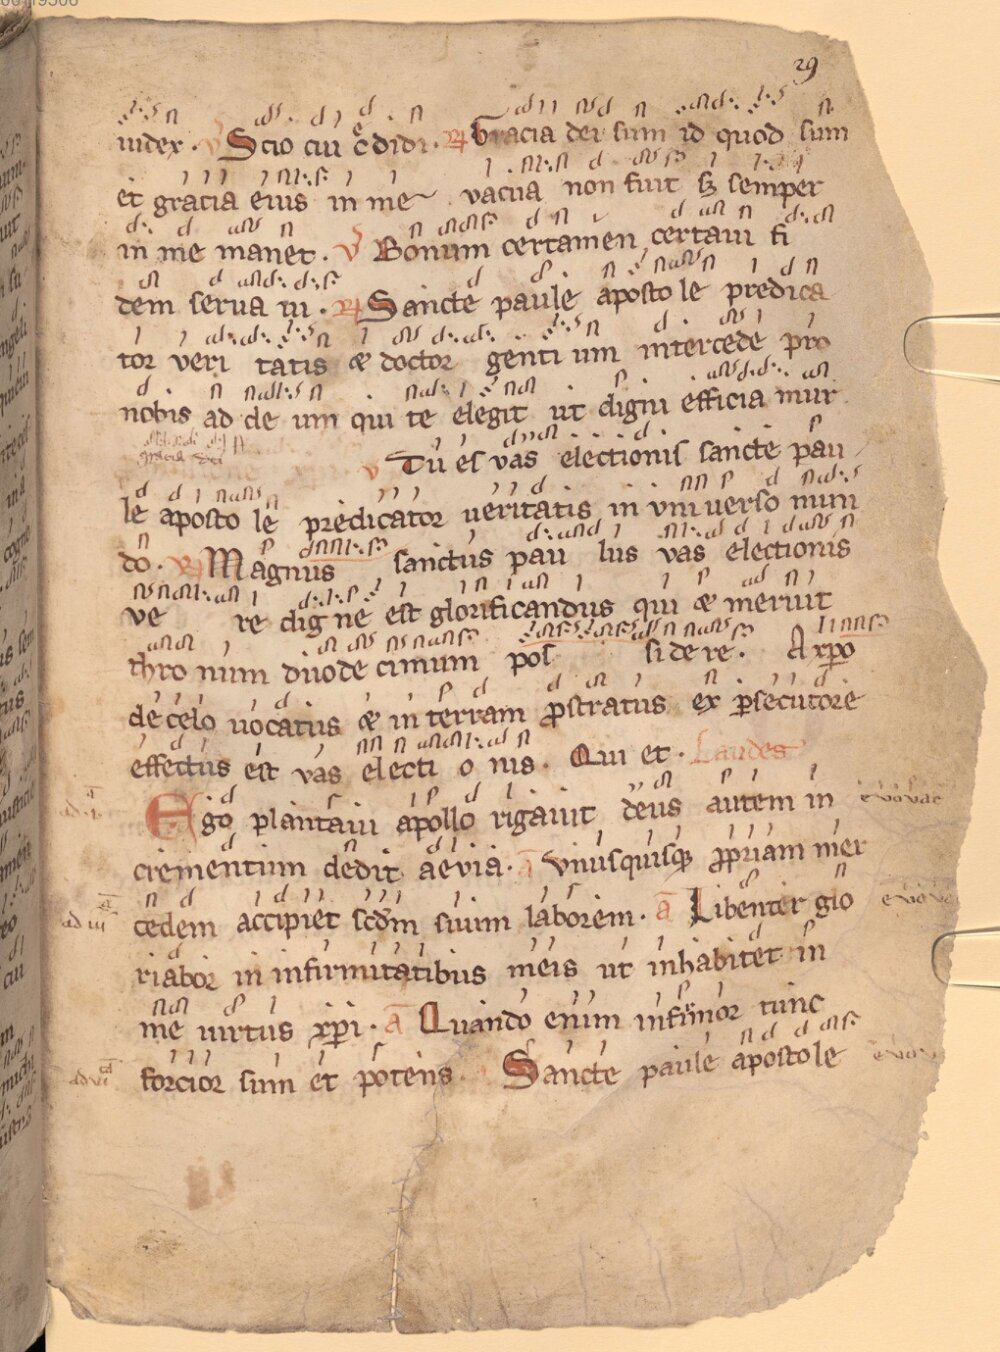 29
iudex. V Scio cui c̄didi. R Gracia dei sum id quod sum
et gracia eius in me vacua non fuit sʒ semper
in me manet. V Bonum certamen certaui fi
dem serua ui. R Sancte paule aposto le predica
tor veri tatis & doctor genti um intercede pro
nobis ad de um qui te elegit ut digni efficia mur
gracia dei
V Tu es vas electionis sancte pau
le aposto le predicator ueritatis in vniuerso mun
do. R Magnus sanctus pau lus vas electionis
ve re digne est glorificandus qui & meruit
thro num duode cimum pos side re. A xp̄o
de celo uocatus & in terram ꝓstratus ex ꝑsecutore
effectus est vas electi o nis. Qui et. Laudes
Ego plantaui apollo rigauit deus autem in
crementum dedit aeuia. ā Vnusquisqꝫ ꝓpriam mer
ad iii
cedem accipiet scd̄m suum laborem. ā Libenter glo
riabor in infirmitatibus meis ut inhabitet in
me uirtus xp̄i. ā Quando enim infirmor tunc
ad vi
forcior sum et potens. Sancte paule apostole